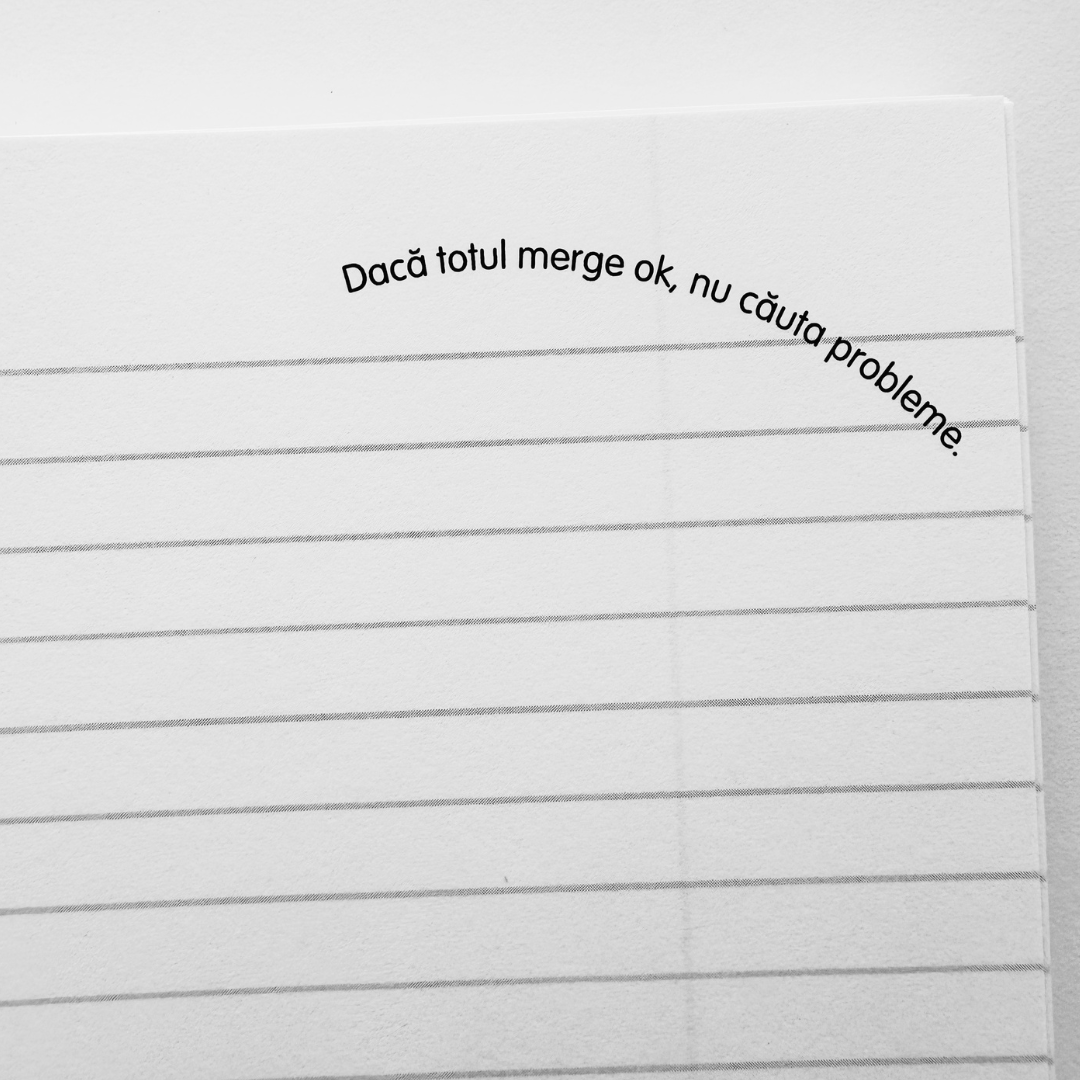 Dacă totul merge ok, nu căuta probleme.